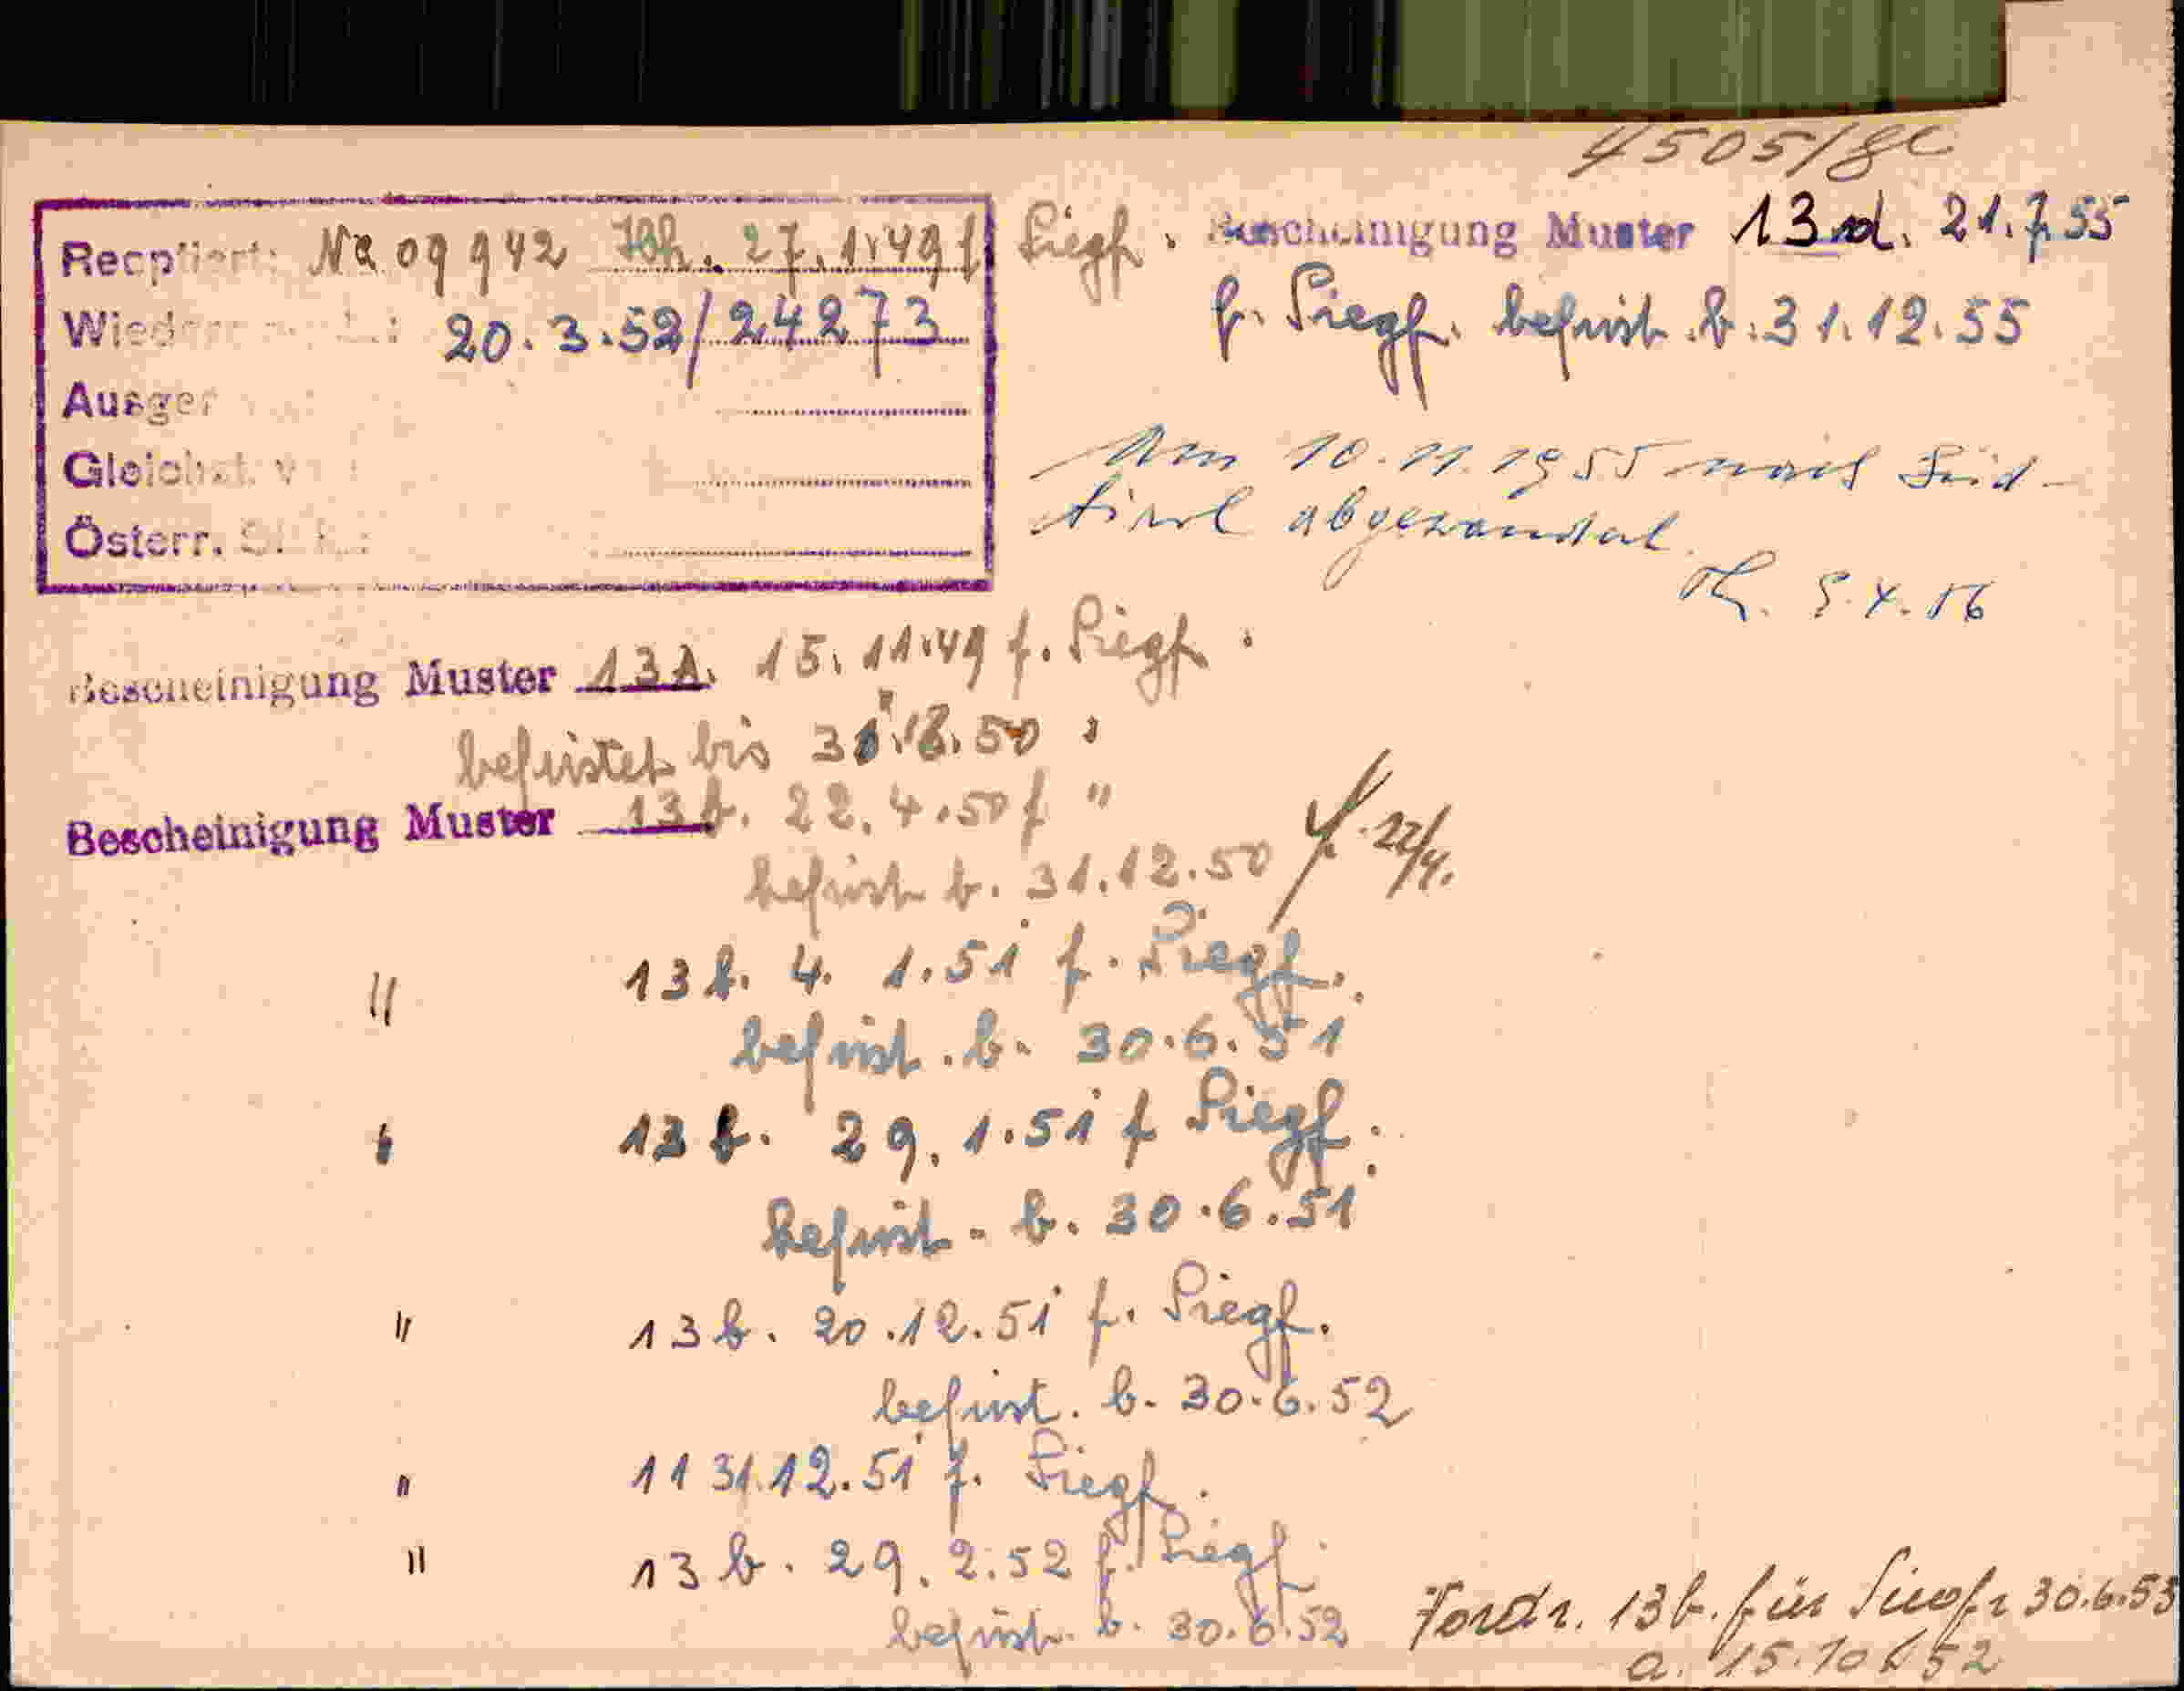 4505/
Reoptiert: Na 09942 27.1.49 f Siegf.
Wieder 20.3.52/24273
Ausger
Gleichst. v
Österr. St
Bescheinigung Muster 13d. 21.7.55
f. Siegf. befrist. b. 31.12.55
Am 10.11.1955 nach Süd-
tirol abgewandert.
5.4.56
Bescheinigung Muster 13A. 15.11.49 f. Siegf.
befristet bis 50
Bescheinigung Muster 13b. 22.4.50 f "
befrist b. 31.12.50 22/4.
" 13b. 4. 1.51 f. Siegf.
befrist. b. 30.6.51
" 13b. 29.1.51 f Siegf.
befrist. b. 30.6.51
" 13b. 20.12.51 f. Siegf.
befrist. b. 30.6.52
" 11 31.12.51 f. Siegf.
" 13b. 29.2.52 f. Siegf.
befrist. b. 30.6.52
13b. für Siegfr 30.6.53
a. 15.10.52